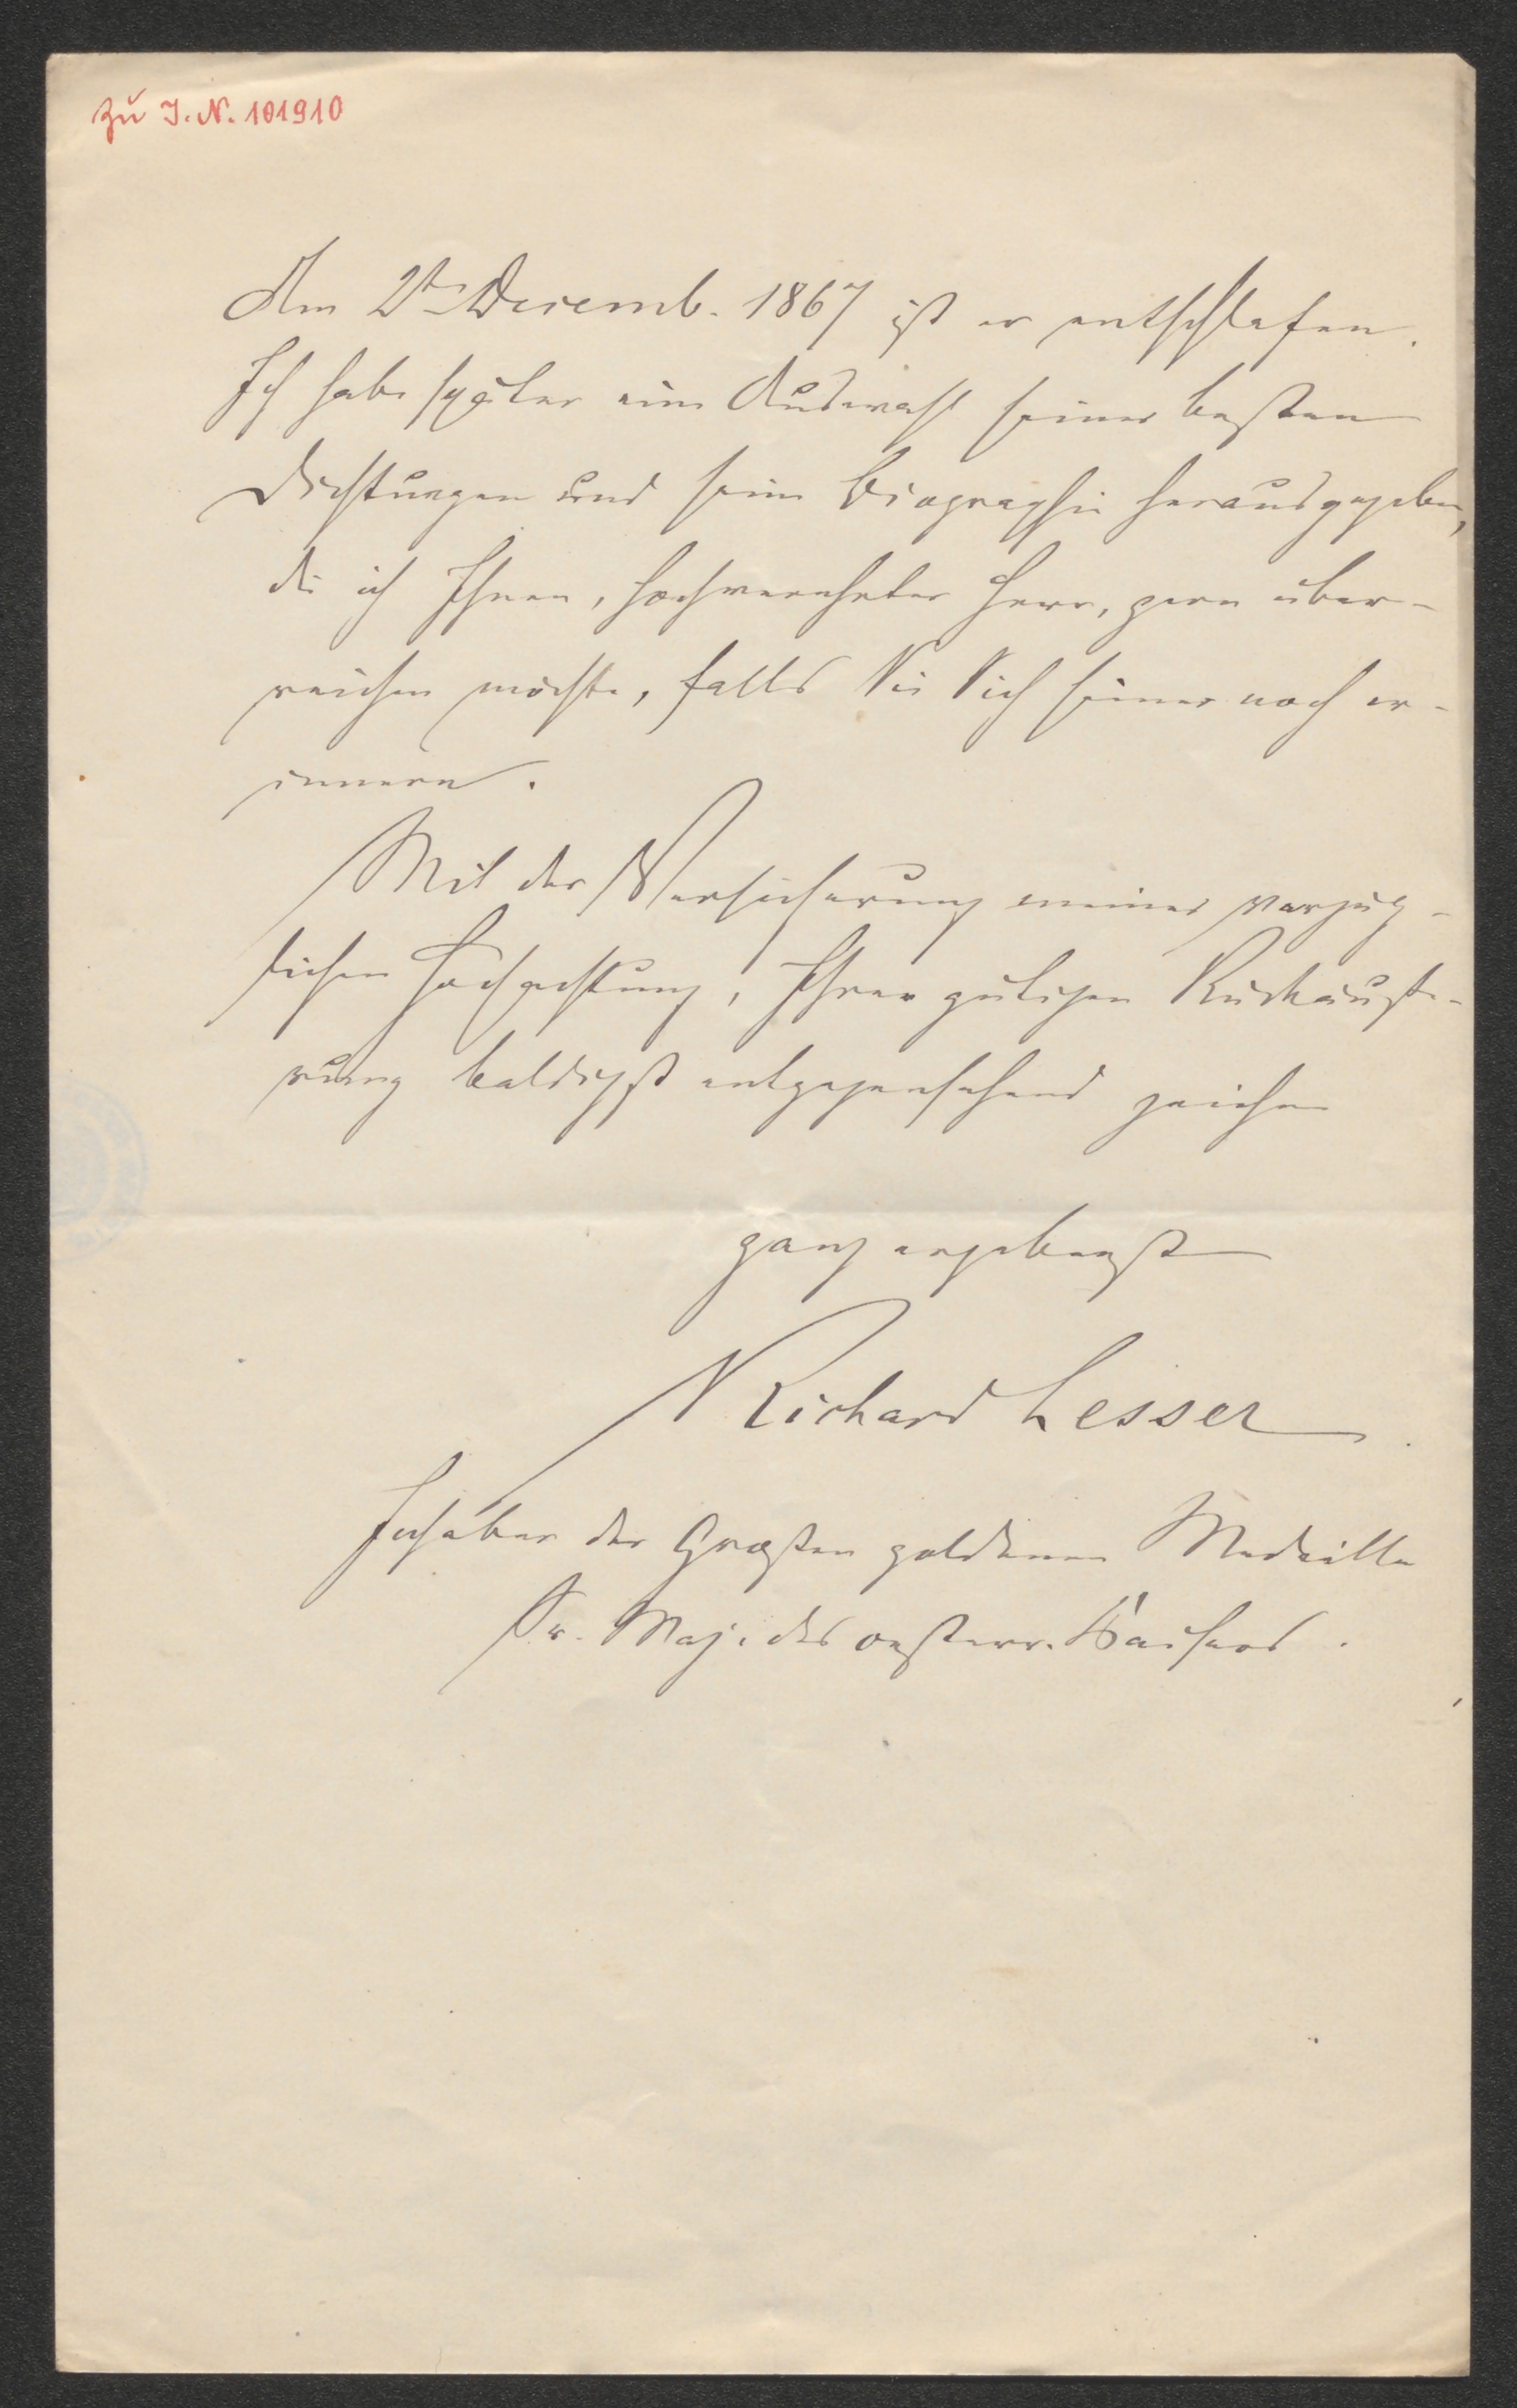 Zu I.N. 101910
Am 2t Decemb. 1867 ist er entschlafen.
Ich habe später eine Auswahl seiner besten
Dichtungen und seine Biographie herausgegeben,
die ich Ihnen, hochverehrter Herr, gern über-
reichen möchte, falls Sie Sich seiner noch er-
innern.
Mit der Versicherung meiner vorzüg-
lichen Hochachtung, Ihrer gütigen Rückäuße-
rung baldigst entgegensehend zeichne
ganz ergebenst
Richard Lesser
Inhaber der Großen goldenen Medaille
Sr. Maj. des oesterr. Kaisers.